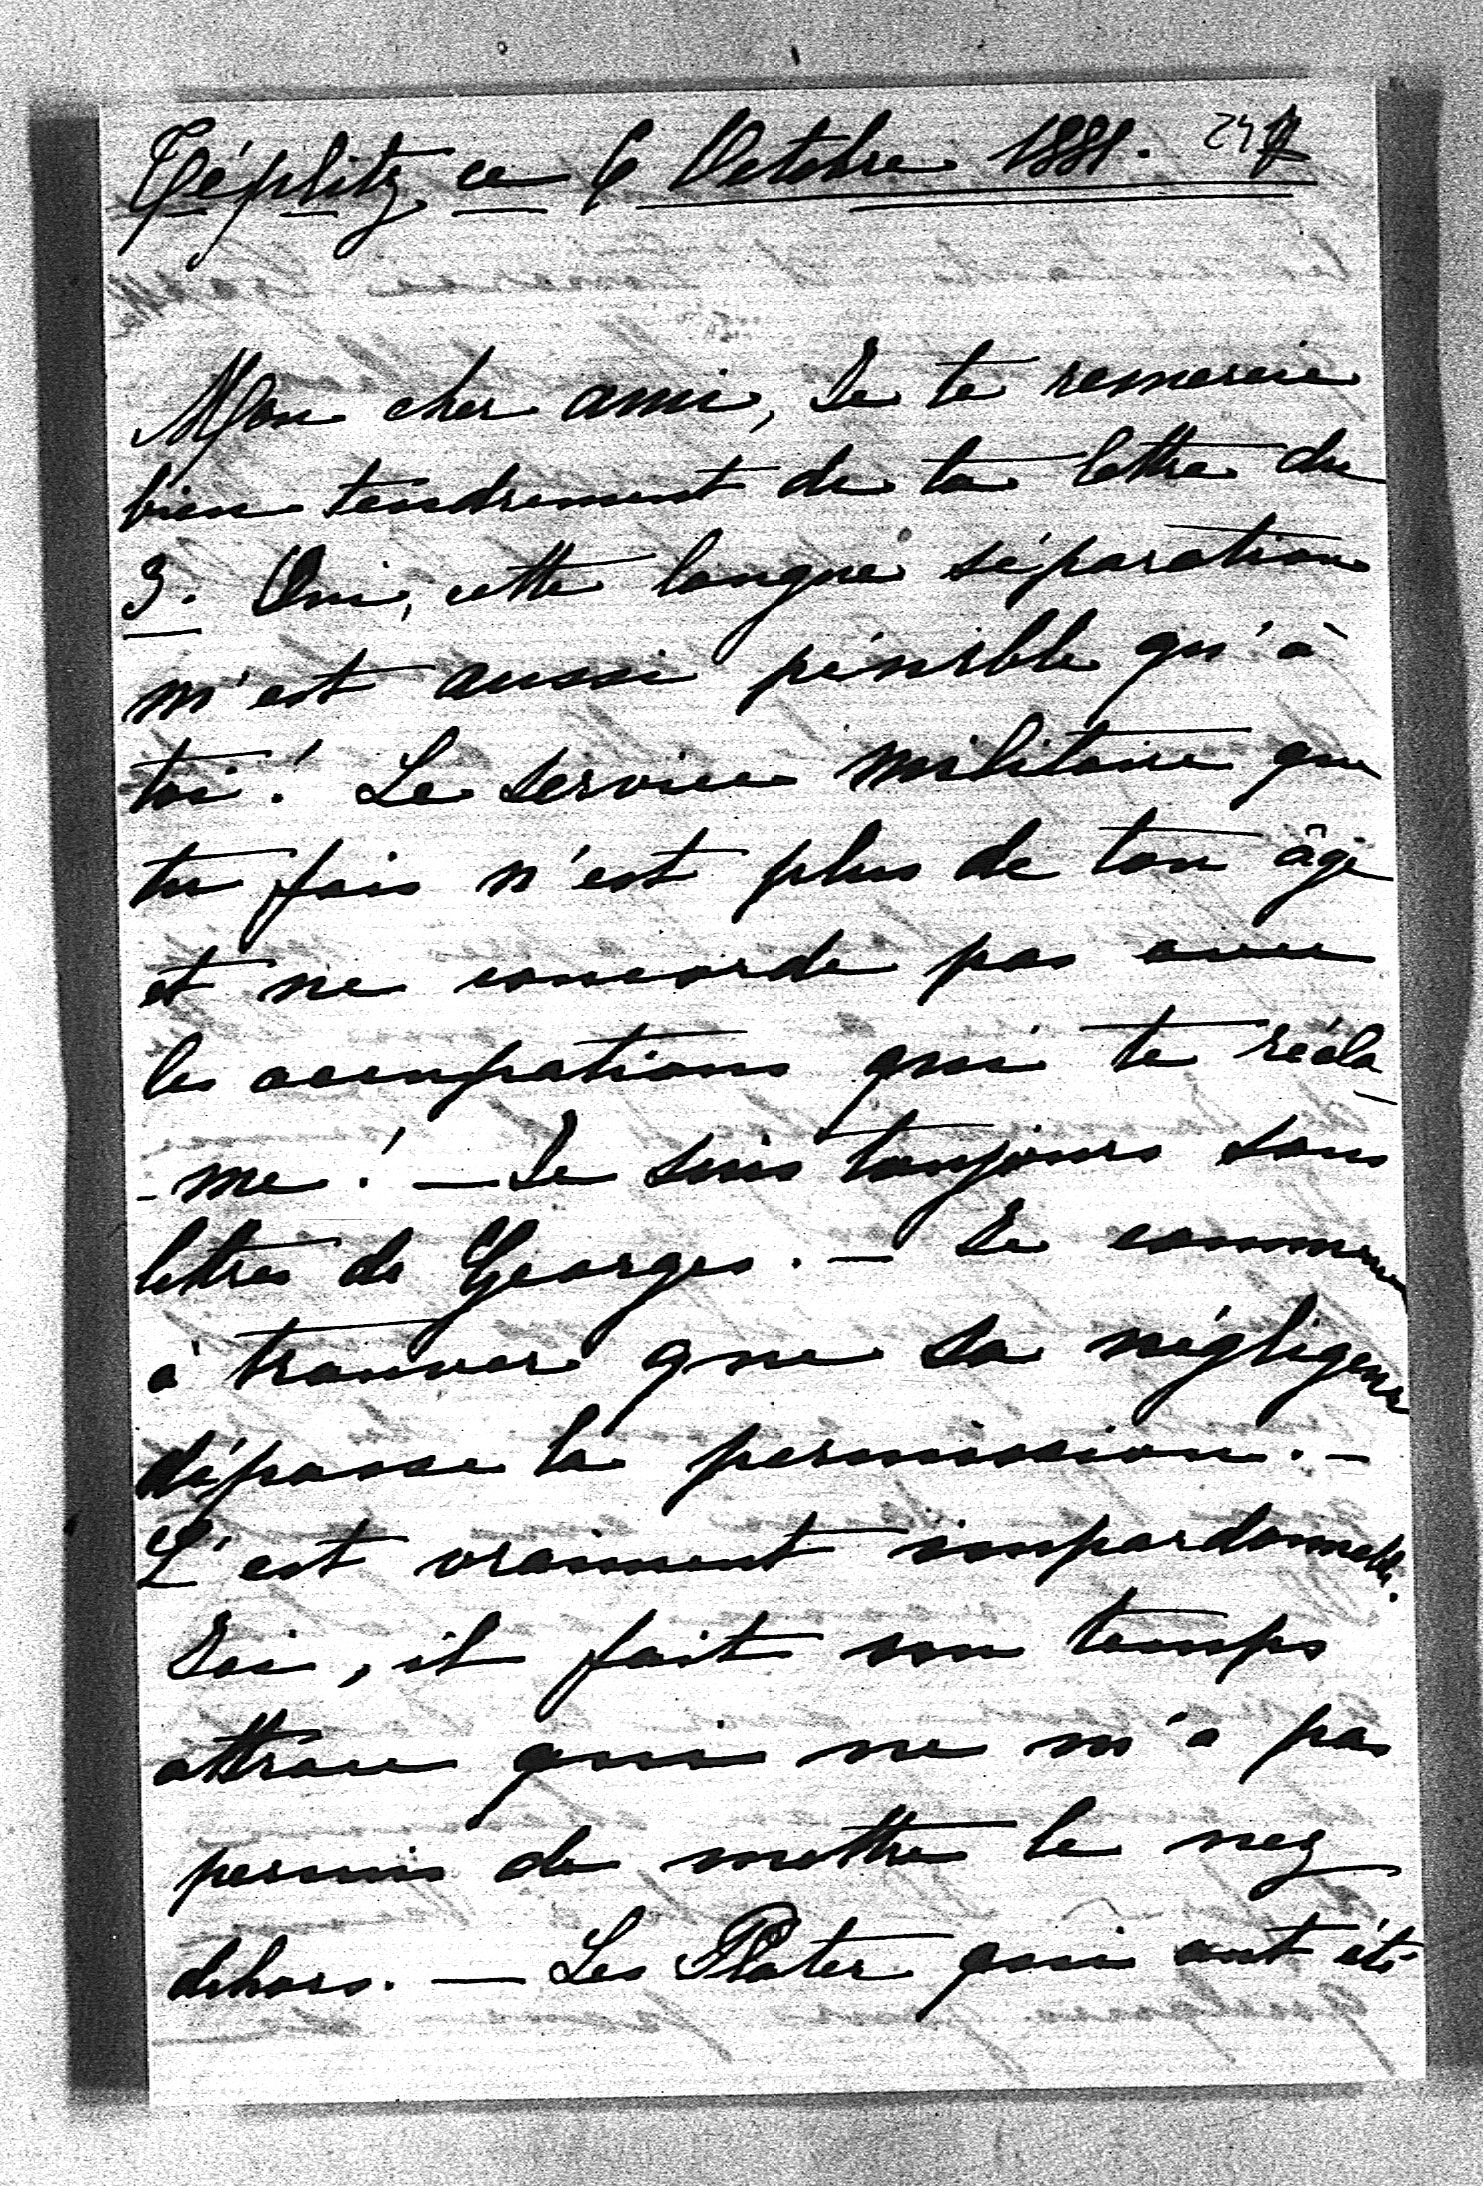 Téplitz ce 6 Octobre 1881.
Mon cher ami, Je te remercie
bien tendrement de ta lettre du
3. Oui, cette longue séparation
m'est aussi pénible qu'à
toi! Le service militaire que
tu fais n'est plus de ton âge
et ne concorde pas avec
les occupations qui te récla
-me! — Je suis toujours sans
lettres de Georges. — Je commence
à trouver que sa négligence
dépasse la permission. —
C'est vraiment impardonnable.
Ici, il fait un temps
attroce qui ne m'a pas
permis de mettre le nez
dehors. — Les Plater qui ont été